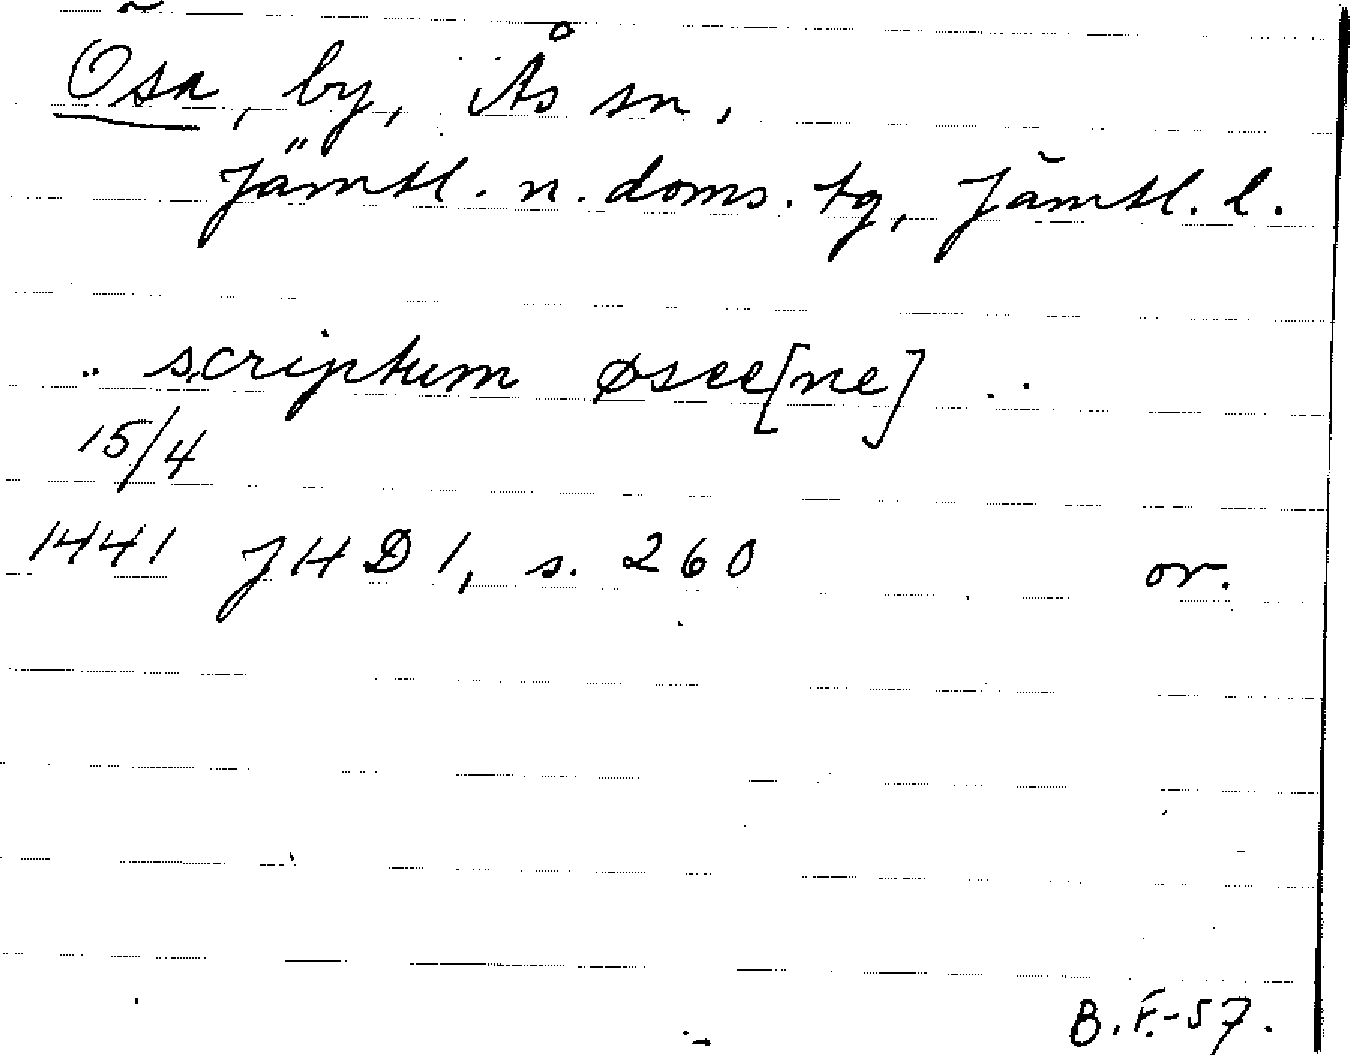 Ösa, by, i Ås sn,
Jämtl. n. doms. tg, Jämtl. l.
.. scriptum øsee[ne] ..
15/4
1441 JHD 1, s. 260 or.
B.F.-57.